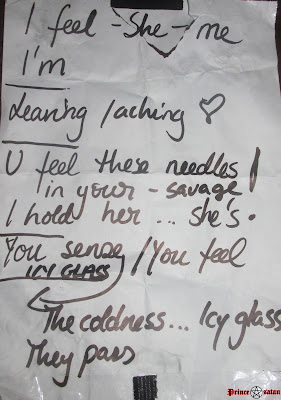 I feel - She - me
I'm
Leaving / aching ♡
U feel these needles!
in your - savage
I hold her ... she's.
You sense / You feel
ICY GLASS
The coldness... Icy glass
They pass
Prince satan